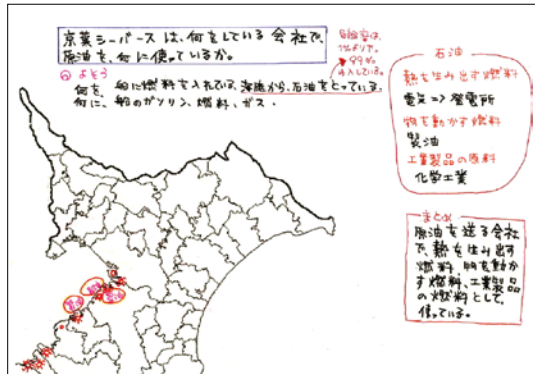 京葉シーバースは、何をしている会社で、
原油を、何に使っているか。
自給率は、
1%より下。
99%
よそう
何を、船に燃料を入れている、海底から、石油をとっている。
何に、船のガソリン、燃料、ガス。
石油
熱を生み出す燃料
電気⇒発電所
物を動かす燃料
製油
工業製品の原料
化学工業
まとめ
原油を送る会社
で、熱を生み出す
燃料、物を動か
す燃料、工業製品
の燃料として、
使っている。